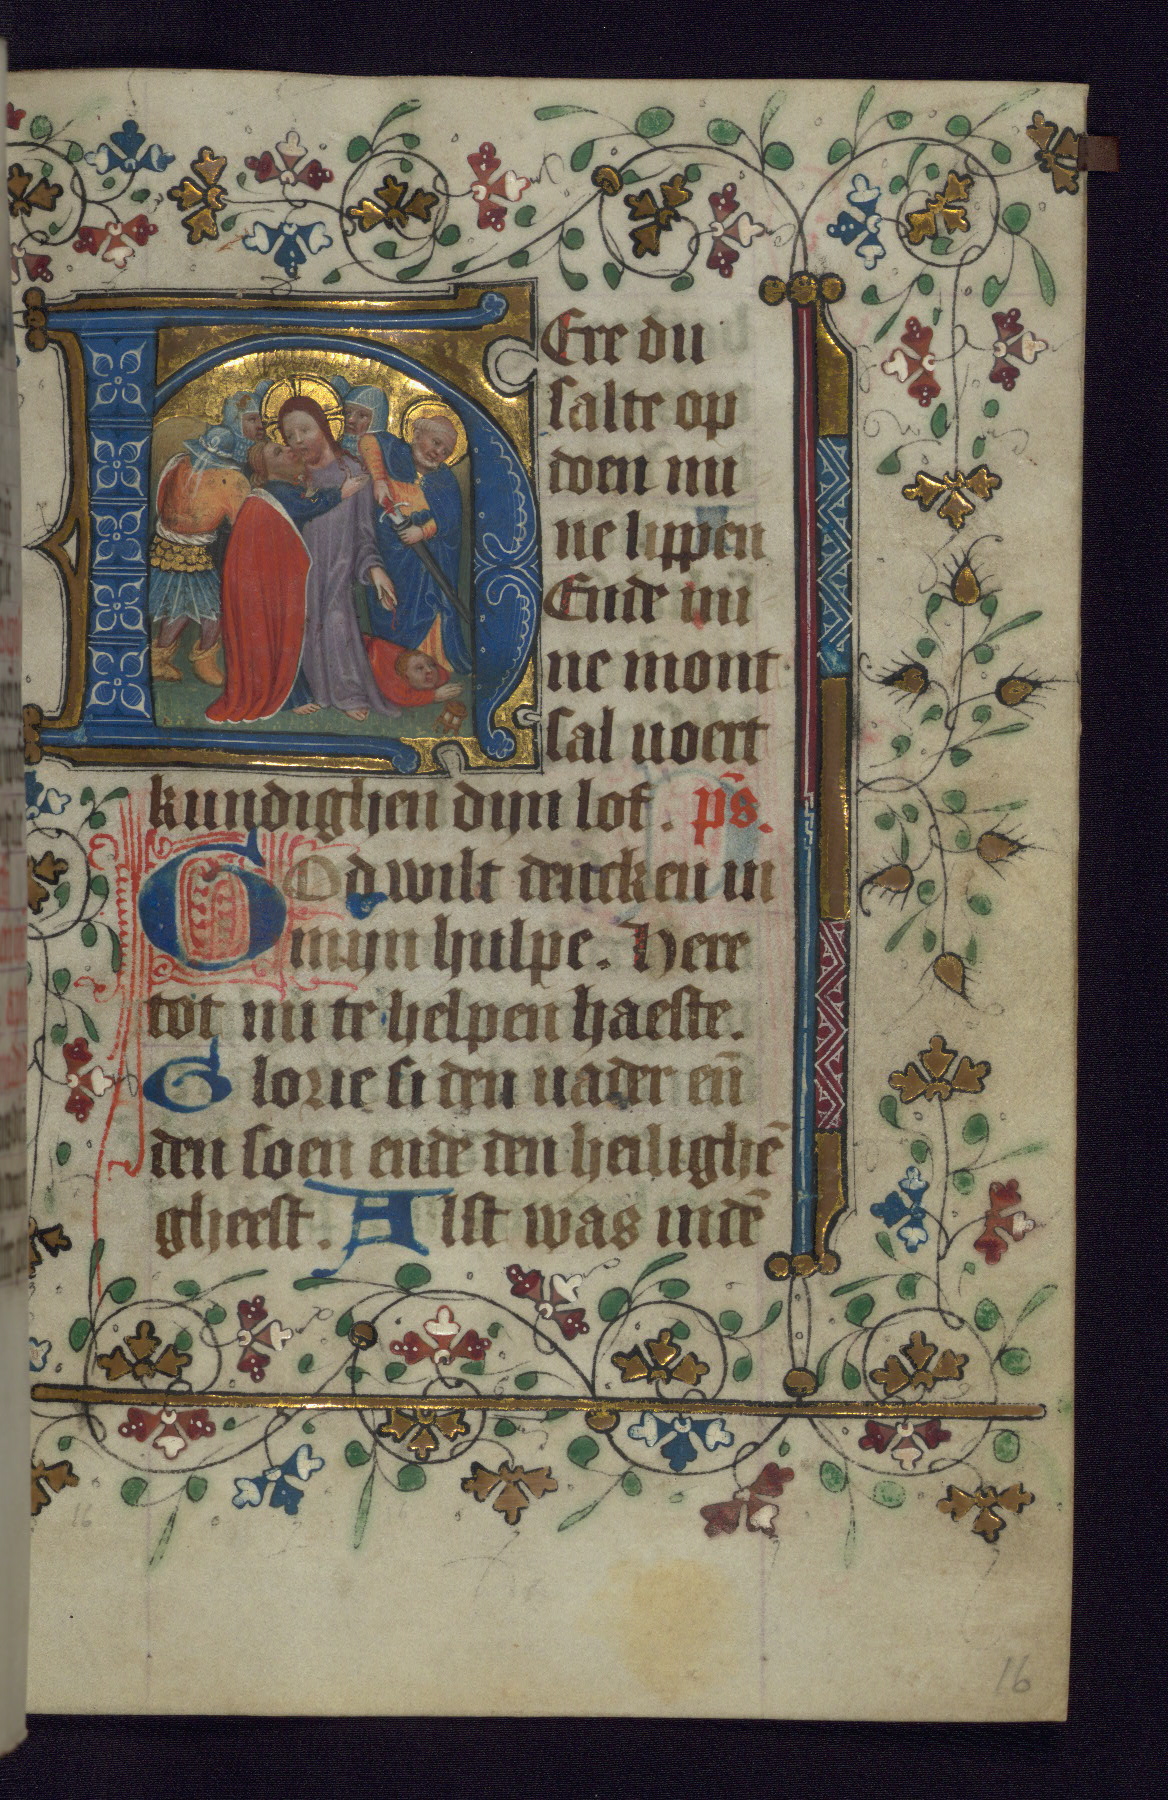 HEre du
salte op
doen mi
ne lippen
Ende mi
ne mont
sal voert
kundighen dijn lof. ps.
GOd wilt dencken in
mijn hulpe. Here
tot mi te helpen haeste.
Glorie si den vader eñ
den soen ende den heilighē
gheest. Alst was indē
16